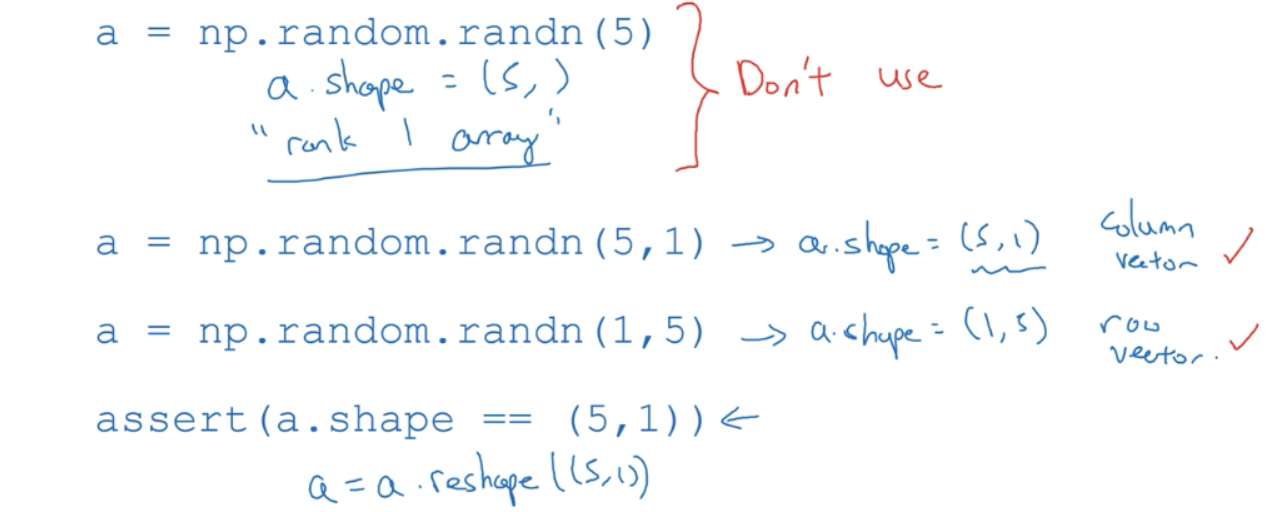 a = np.random.randn(5)
a.shape = (5,)
"rank 1 array"
Don't use
a = np.random.randn(5,1) → a.shape = (5,1) column vector ✓
a = np.random.randn(1,5) → a.shape = (1,5) row vector. ✓
assert(a.shape == (5,1)) ←
a = a.reshape((5,1))